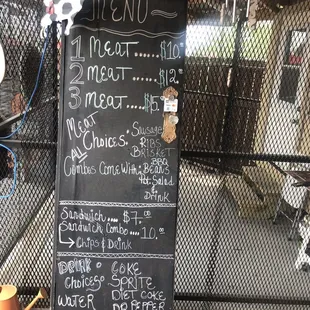 MENU
1 Meat.....$10.
2 meat.....$12.
3 meat....$5
Meat Choices: Sausage
RIBS
BRISKET
ALL Combos Come With: BBQ BEANS
Salad
& Drink
Sandwich....$7.00
Sandwich Combo....10.00
↳ Chips & Drink
DRINK Choices
COKE
SPRITE
DIET COKE
DR PEPPER
WATER